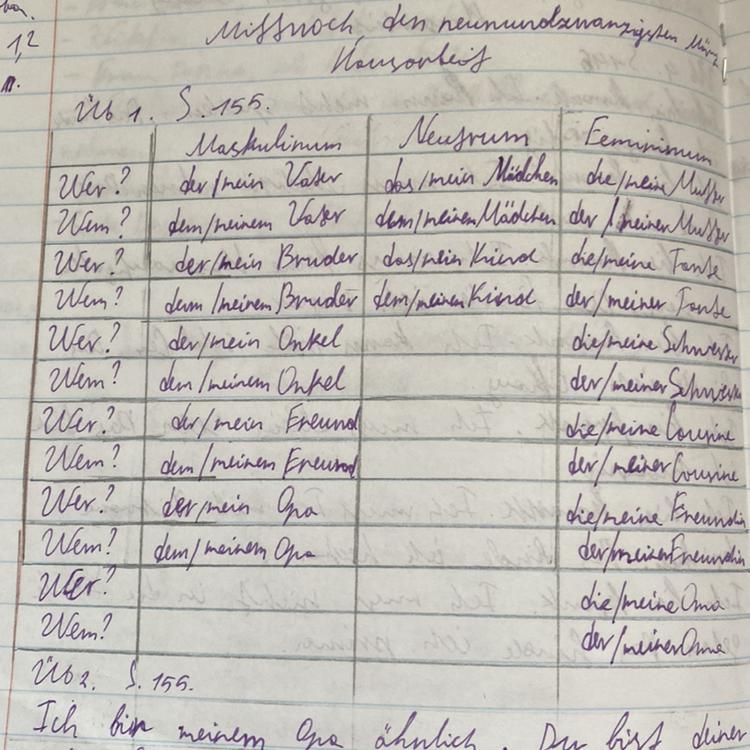 1,2
Mittwoch, den neunundzwanzigsten März
Hausarbeit
Üb 1. S. 155.
Maskulinum Neutrum Femininum
Wer? der/mein Vater das/mein Mädchen die/meine Mutter
Wem? dem/meinem Vater dem/meinem Mädchen der/meiner Mutter
Wer? der/mein Bruder das/mein Kiend die/meine Tante
Wem? dem/meinem Bruder dem/meinem Kiend der/meiner Tante
Wer? der/mein Onkel die/meine Schwester
Wem? dem/meinem Onkel der/meiner Schwester
Wer? der/mein Freund die/meine Cousine
Wem? dem/meinem Freund der/meiner Cousine
Wer? der/mein Opa die/meine Freundin
Wem? dem/meinem Opa der/meiner Freundin
Wer? die/meine Oma
Wem? der/meiner Oma
Üb 2. S. 155.
Ich bin meinem Opa ähnlich. Du bist deiner